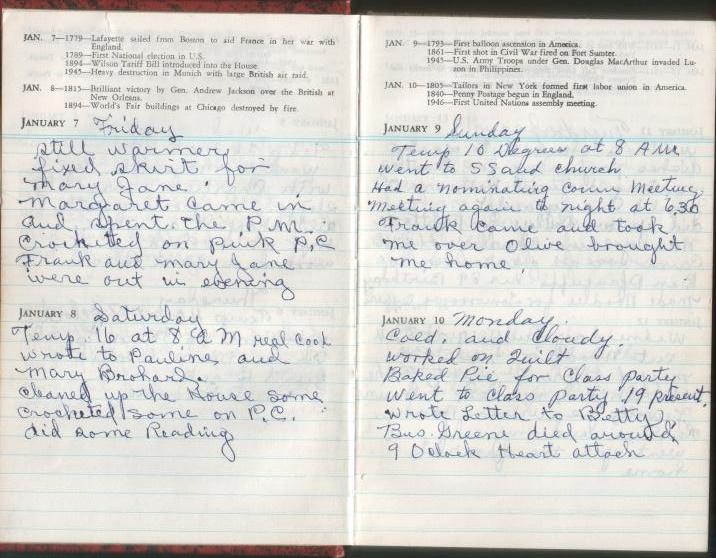 JAN. 7—1779—Lafayette sailed from Boston to aid France in her war with
England.
1789—First National election in U.S.
1894—Wilson Tariff Bill introduced into the House.
1945—Heavy destruction in Munich with large British air raid.
JAN. 8—1815—Brilliant victory by Gen. Andrew Jackson over the British at
New Orleans.
1894—World's Fair buildings at Chicago destroyed by fire.
JANUARY 7 Friday
still warmer
fixed skirt for
Mary Jane.
Margaret came in
and spent the P.M.
crocheted on Pink P,C
Frank and mary Jane
were out in evening
JANUARY 8 Saturday
Temp. 16 at 8 A M real cook
wrote to Pauline and
Mary Brohard.
cleaned up the House some
crocheted some on P.C.
did some Reading
JAN. 9—1793—First balloon ascension in America.
1861—First shot in Civil War fired on Fort Sumter.
1945—U.S. Army Troops under Gen. Douglas MacArthur invaded Lu-
zon in Philippines.
JAN. 10—1805—Tailors in New York formed first labor union in America.
1840—Penny Postage begun in England.
1946—First United Nations assembly meeting.
JANUARY 9 Sunday
Temp 10 Degrees at 8 A M.
went to S S and church
Had a nominating Comm Meeting,
Meeting again to night at 6,30
Frank came and took
me over Olive brought
me home.
JANUARY 10 Monday.
Cold, and Cloudy.
worked on Quilt
Baked Pie for Class Party
went to Class Party. 19 present,
wrote Letter to Betty
Bus. Greene died around
9 Oclock Heart attack